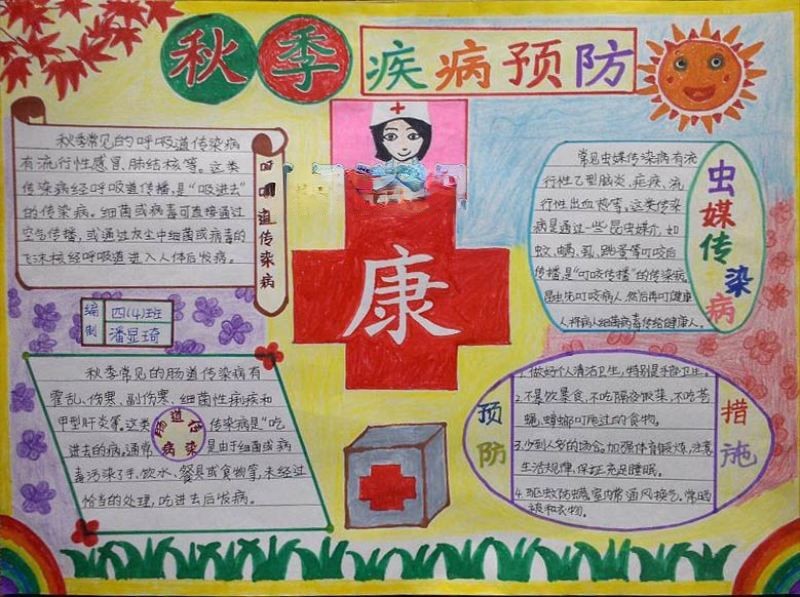 秋季疾病预防
秋季常见的呼吸道传染病
有流行性感冒、肺结核等。这类
传染病经呼吸道传播，是“吸进去”
的传染病。细菌或病毒可直接通过
空气传播，或通过灰尘中细菌或病毒的
飞沫核经呼吸道进入人体后发病。
道传染病
编制
四(4)班
潘显琦
康
常见虫媒传染病有流
行性乙型脑炎、疟疾、流
行性出血热等。这类传染
病是通过一些昆虫媒介，如
蚊、螨、虱、跳蚤等叮咬后
传播，是“叮咬传播”的传染病，
昆虫先叮咬病人，然后再叮健康
人，将病人细菌病毒传给健康人。
虫媒传染病
秋季常见的肠道传染病有
霍乱、伤寒、副伤寒、细菌性痢疾和
甲型肝炎等。这类传染病是“吃
进去的病”。通常是由于细菌或病
毒污染了手、饮水、餐具或食物等，未经过
恰当的处理，吃进去后发病。
肠道传染病
预防
1.做好个人清洁卫生，特别是手部卫生。
2.不暴饮暴食，不吃隔夜饭菜，不吃苍
蝇、蟑螂叮爬过的食物。
3.少到人多的场合。加强体育锻炼，注意
生活规律，保证充足睡眠。
4.驱蚊防螨，室内常通风换气，常晒
被和衣物。
措施